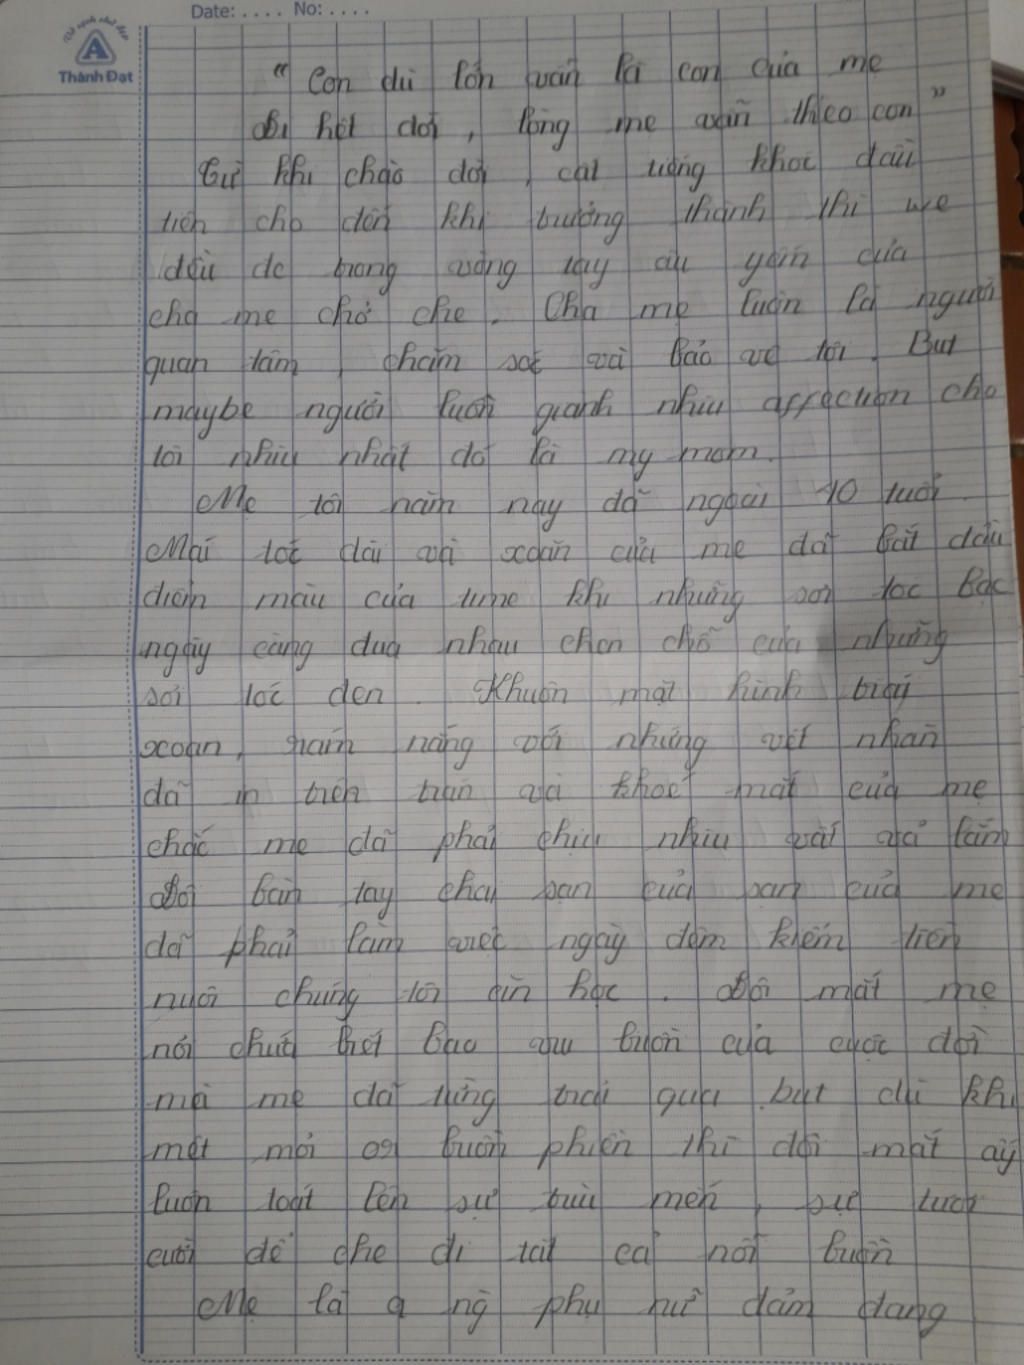 Date: .... No: ....
Vở sạch chữ đẹp
Thành Đạt
"Con dù lớn vẫn là con của mẹ
Đi hết đời, lòng mẹ vẫn theo con"
Từ khi chào đời, cất tiếng khóc đầu
tiên cho đến khi trưởng thành thì we
đều đc trong vòng tay âu yếm của
cha mẹ chở che. Cha mẹ luôn là người
quan tâm, chăm sóc và bảo vệ tôi. But
maybe người luôn giành nhìu affection cho
tôi nhìu nhất đó là my mom.
Mẹ tôi năm nay đã ngoài 40 tuổi.
Mái tóc dài và xoăn của mẹ đã bắt đầu
điểm màu của time khi những sợi tóc bạc
ngày càng đua nhau chen chỗ của những
sợi tóc đen. Khuôn mặt hình trái
xoan, rám nắng với những vết nhăn
đã in trên trán và khoé mắt của mẹ
chắc mẹ đã phải chịu nhìu vất vả lắm
Đôi bàn tay chai sạn của sạn của mẹ
đã phải làm việc ngày đêm kiếm tiền
nuôi chúng tôi ăn học. Đôi mắt mẹ
nói chứa biết bao ưu buồn của cuộc đời
mà mẹ đã từng trải qua but dù khi
mệt mỏi or buồn phiền thì đôi mắt ấy
luôn toát lên sự trìu mến, sự tươi
cười để che đi tất cả nỗi buồn
Mẹ là a ng phụ nữ đảm đang